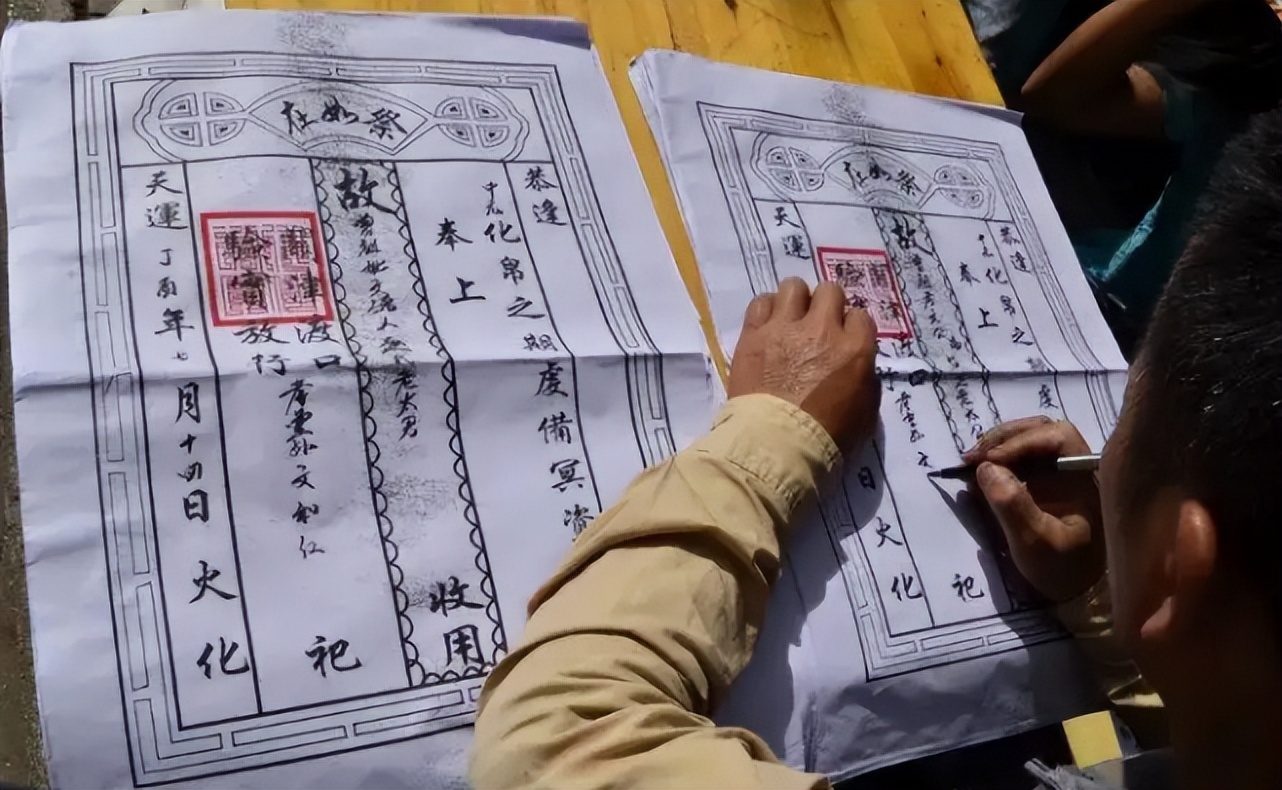 祭如在
恭逢
中元化帛之期虔備冥資
奉上
故
老大
收用
關津渡口
驗實放行
孝
孫文和仁
祀
天運丁酉年七月十四日火化
祭如在
恭逢
中元化帛之
虔
奉上
故
津
口
行
孝
孫文
祀
天運
日火化